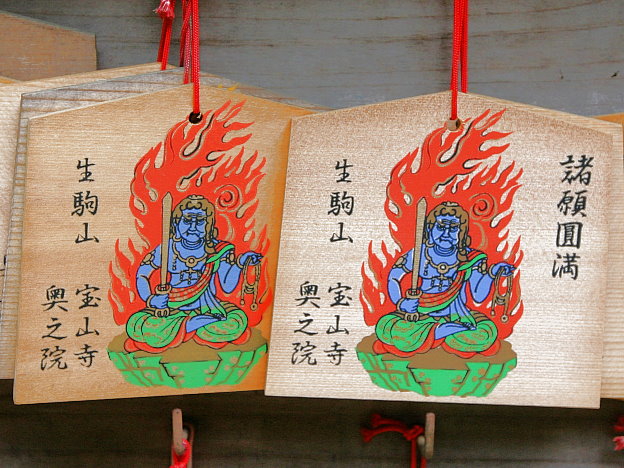 生駒山
宝山寺
奥之院
諸願圓満
生駒山
宝山寺
奥之院